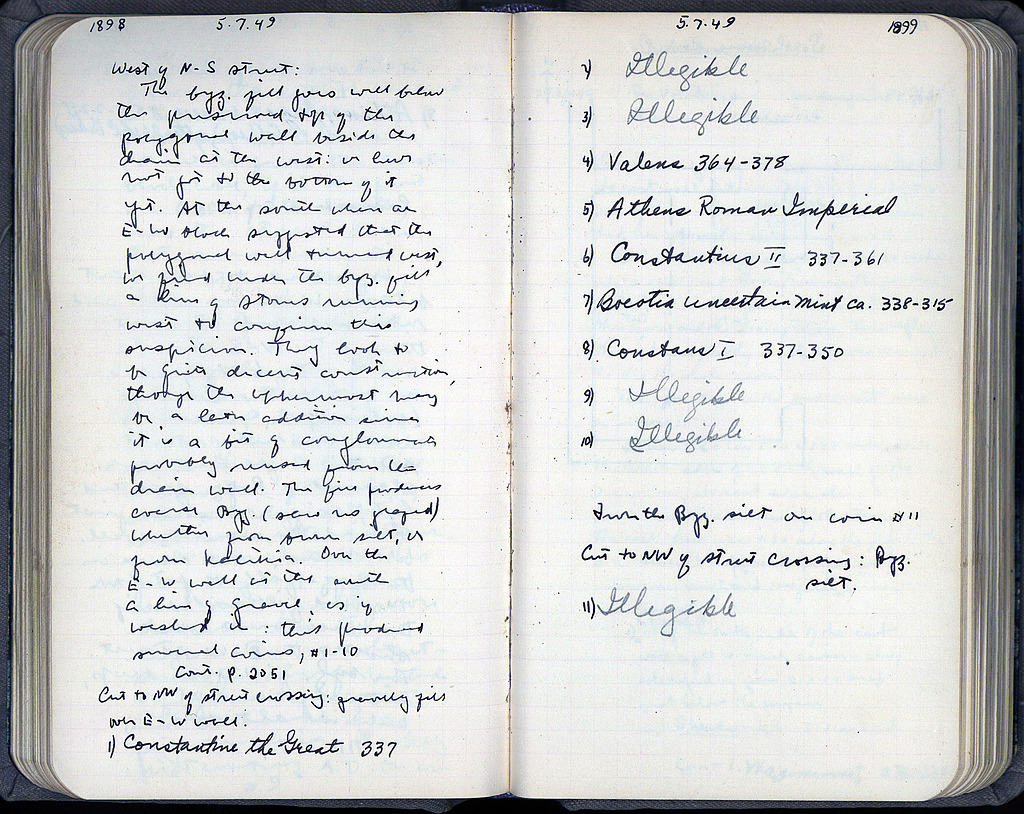 1898 5.7.49
West of N-S street:
The byz. fill goes well below
the preserved top of the
polygonal wall beside the
drain at the west: we have
not got to the bottom of it
yet. At the south where an
E-W block suggested that the
polygonal wall turned west,
we find under the byz. fill
a line of stones running
west to confirm this
suspicion. They look to
be quite decent construction,
though the uppermost may
be a later addition since
it is a bit of conglomerate
probably reused from the
drain wall. The fill produces
coarse Byz. (semi no glazed)
whether from brown silt, or
from
E-W wall at the south
a line of gravel, as if
washed in: this produced
several coins, #1-10
Cont. p. 2051
Cut to NW of street crossing: gravelly fill
over E-W wall.
1) Constantine the Great 337
5.7.49 1899
2) Illegible
3) Illegible
4) Valens 364-378
5) Athens Roman Imperial
6) Constantius II 337-361
7) Boeotia uncertain mint ca. 338-315
8) Constans I 337-350
9) Illegible
10) Illegible
From the Byz. silt one coin #11
Cut to NW of street crossing: Byz.
silt.
11) Illegible